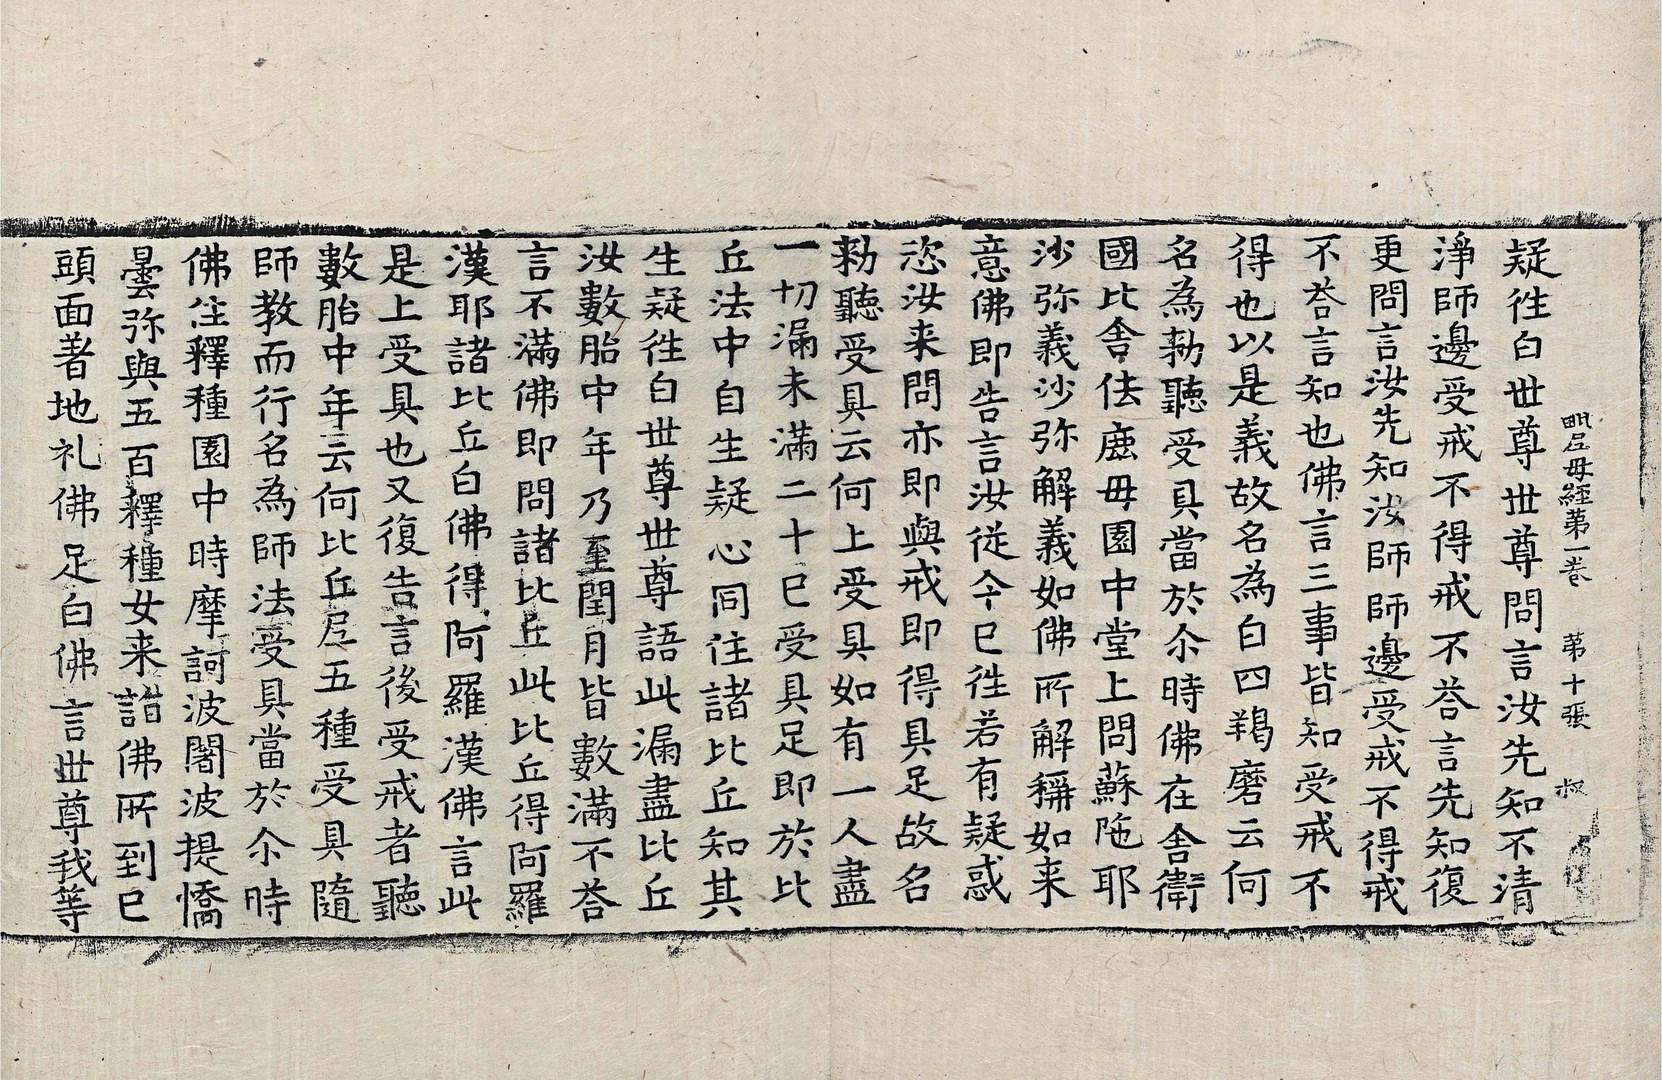 毗尼母經第一卷 第十張 叔
疑徃白世尊世尊問言汝先知不清
淨師邊受戒不得戒不荅言先知復
更問言汝先知汝師師邊受戒不得戒
不荅言知也佛言三事皆知受戒不
得也以是義故名為白四羯磨云何
名為勑聽受具當於尒時佛在舍衛
國比舍佉鹿母園中堂上問蘇陁耶
沙弥義沙弥解義如佛所解稱如来
意佛即告言汝従今已徃若有疑惑
恣汝来問亦即與戒即得具足故名
勑聽受具云何上受具如有一人盡
一切漏未滿二十已受具足即於比
丘法中自生疑心同住諸比丘知其
生疑徃白世尊世尊語此漏盡比丘
汝數胎中年乃至閏月皆數滿不荅
言不滿佛即問諸比丘此比丘得阿羅
漢耶諸比丘白佛得阿羅漢佛言此
是上受具也又復告言後受戒者聽
數胎中年云何比丘尼五種受具隨
師教而行名為師法受具當於尒時
佛住釋種園中時摩訶波闍波提憍
曇弥與五百釋種女来詣佛所到已
頭面著地礼佛足白佛言世尊我等